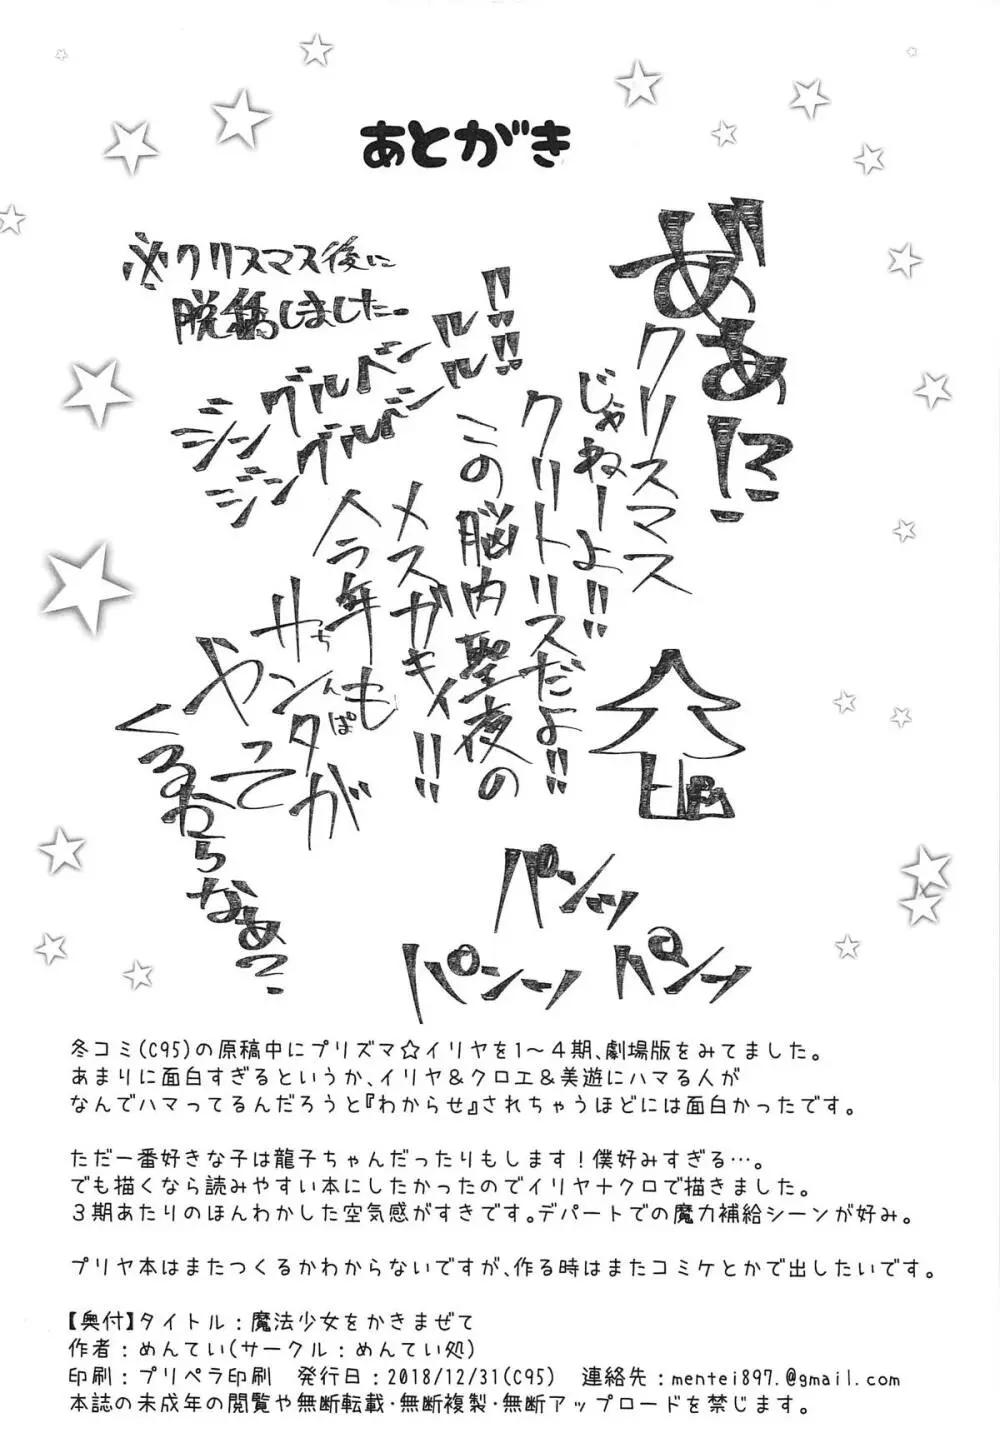 あとがき
※クリスマス後に
脱稿しました。
ジングルベール!!
ジングルベール!!
冬コミ(C95)の原稿中にプリズマ☆イリヤを1〜4期、劇場版をみてました。
あまりに面白すぎるというか、イリヤ&クロエ&美遊にハマる人が
なんでハマってるんだろうと『わからせ』されちゃうほどには面白かったです。
ただ一番好きな子は龍子ちゃんだったりもします!僕好みすぎる…。
でも描くなら読みやすい本にしたかったのでイリヤ+クロで描きました。
3期あたりのほんわかした空気感がすきです。デパートでの魔力補給シーンが好み。
プリヤ本はまたつくるかわからないですが、作る時はまたコミケとかで出したいです。
【奥付】タイトル:魔法少女をかきまぜて
作者:めんてい(サークル:めんてい処)
印刷:プリペラ印刷　発行日:2018/12/31(C95)　連絡先:mentei897.@gmail.com
本誌の未成年の閲覧や無断転載・無断複製・無断アップロードを禁じます。